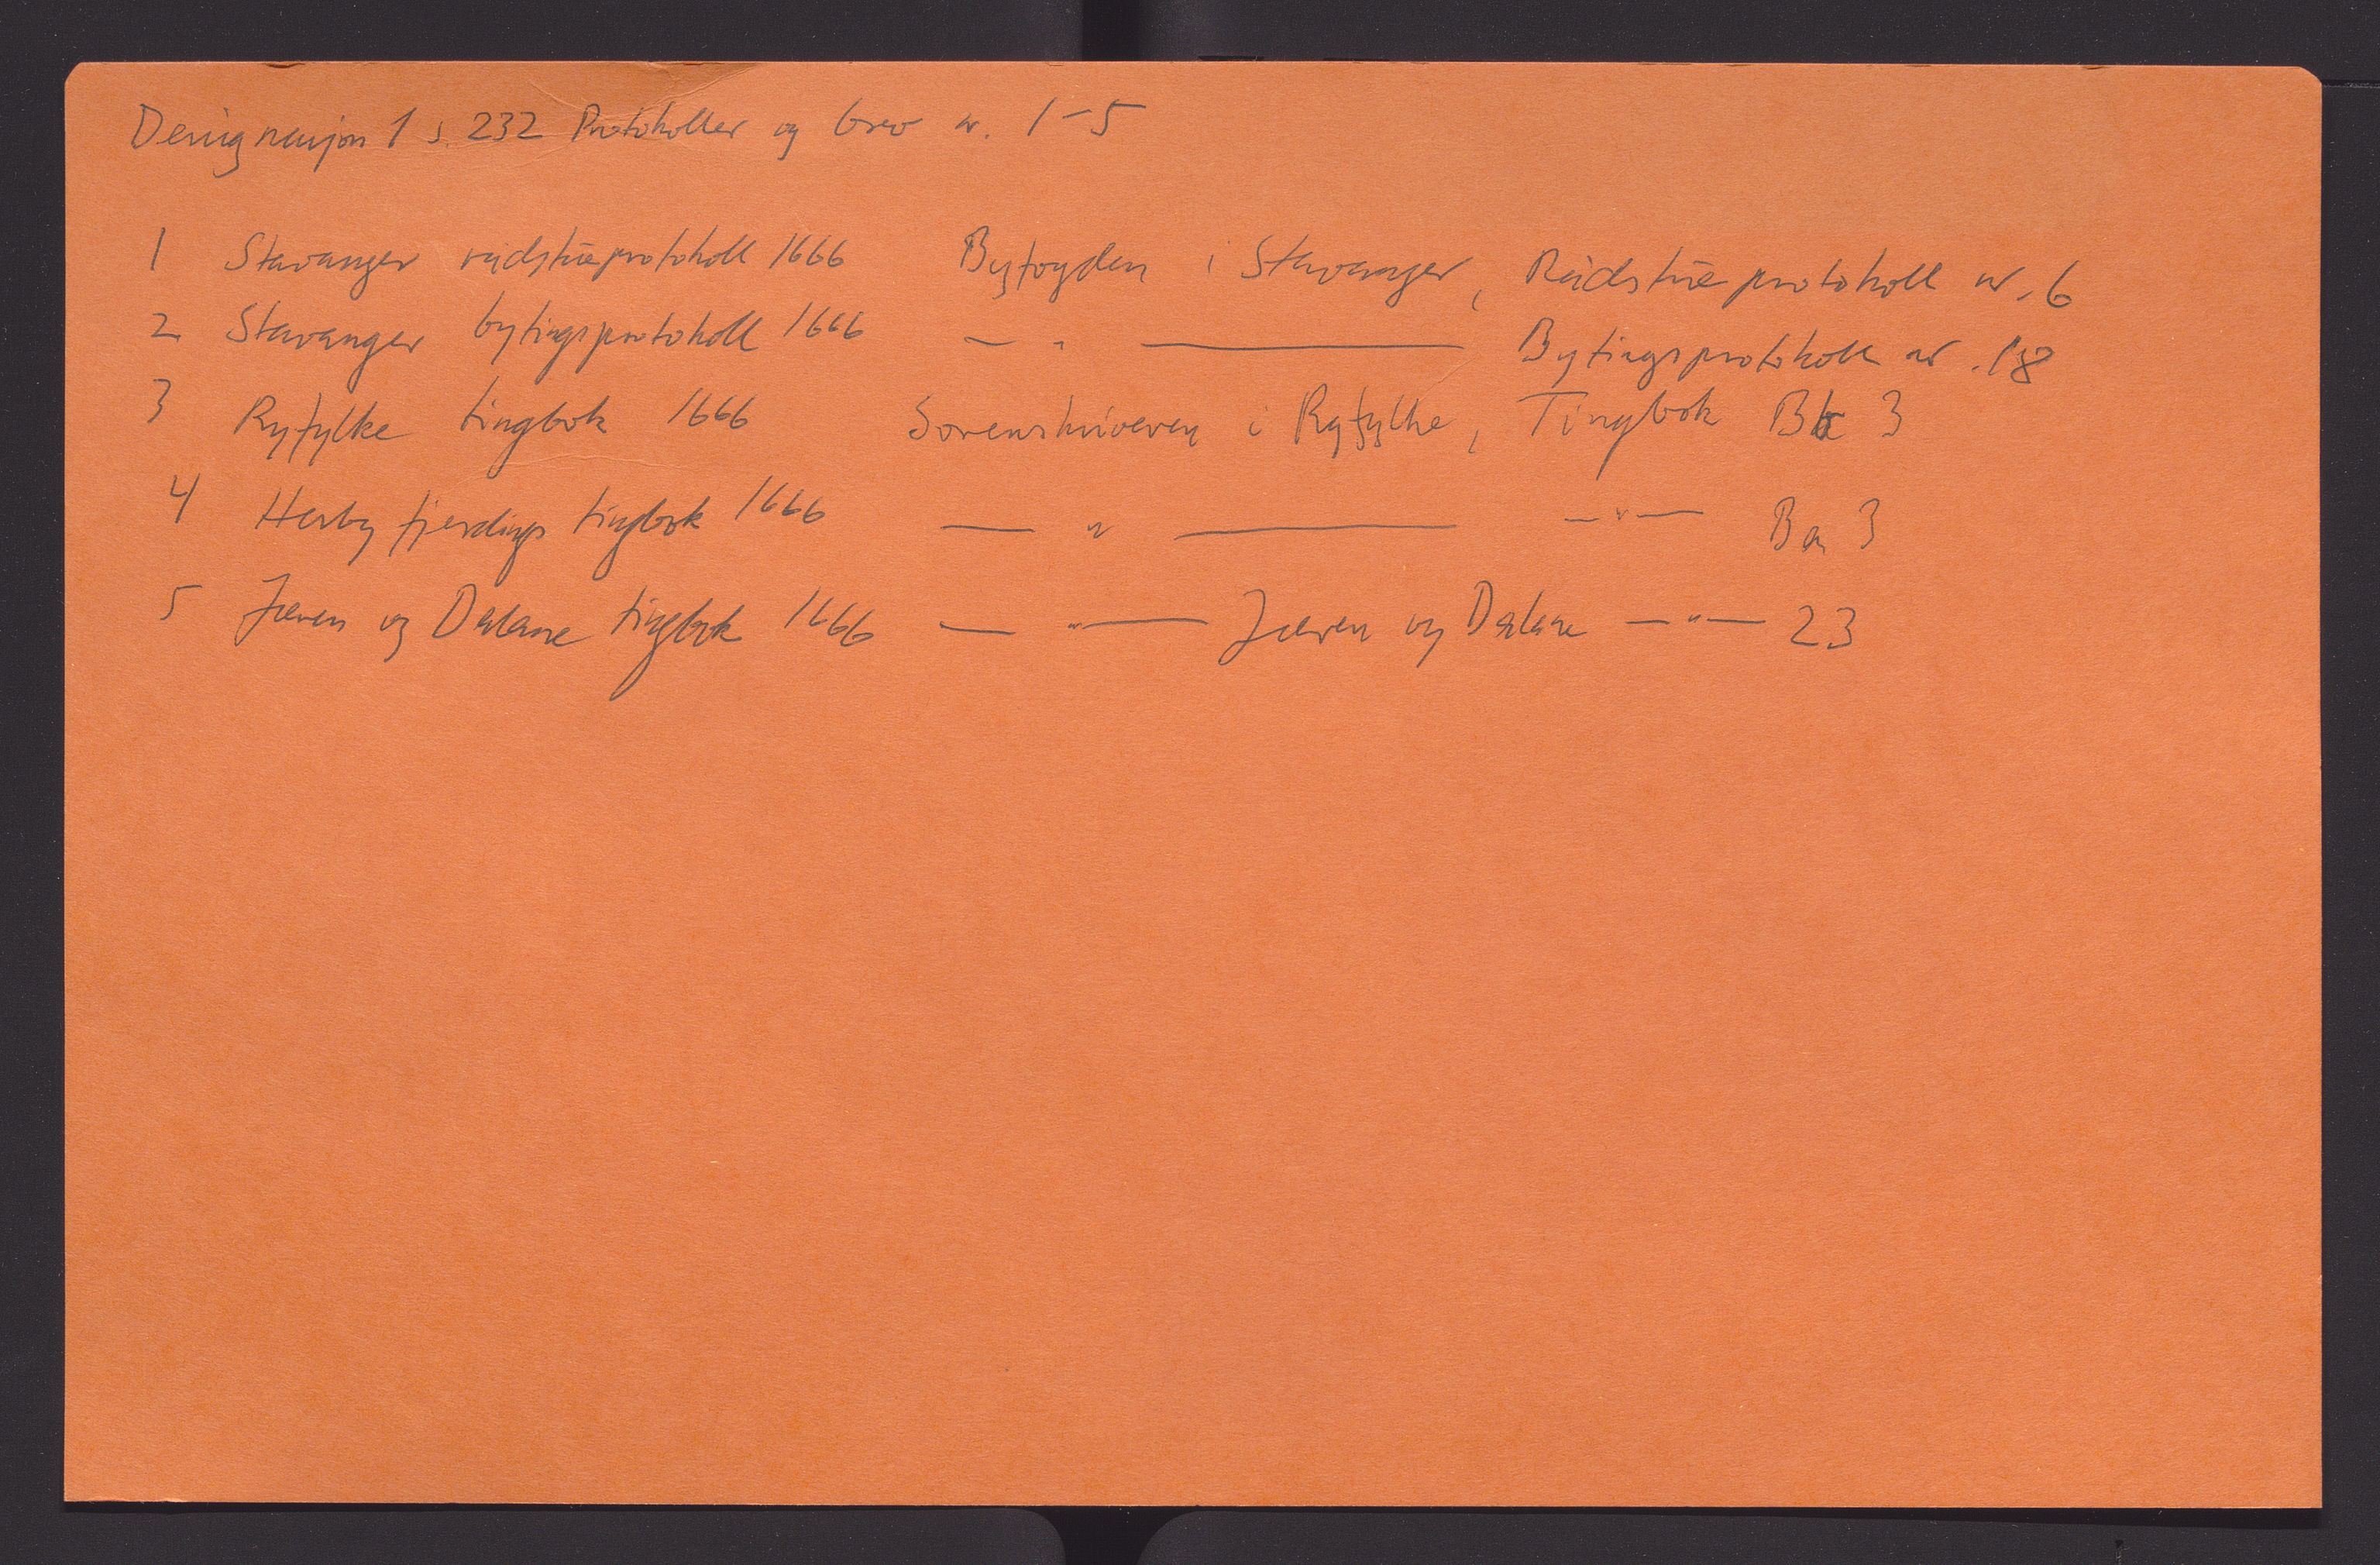 Designasjon 1 s. 232 Protokoller og brev nr. 1-5
1 Stavanger rådstueprotokoll 1666 Byfogden i Stavanger, Rådstueprotokoll nr. 6
2 Stavanger bytingsprotokoll 1666 — " — Bytingsprotokoll nr. 18
3 Ryfylke tingbok 1666 Sorenskriveren i Ryfylke, Tingbok 3
4 Hesby fjerdings tingbok 1666 — " — — " — Ba 3
5 Jæren og Dalane tingbok 1666 — " — Jæren og Dalane — " — 23